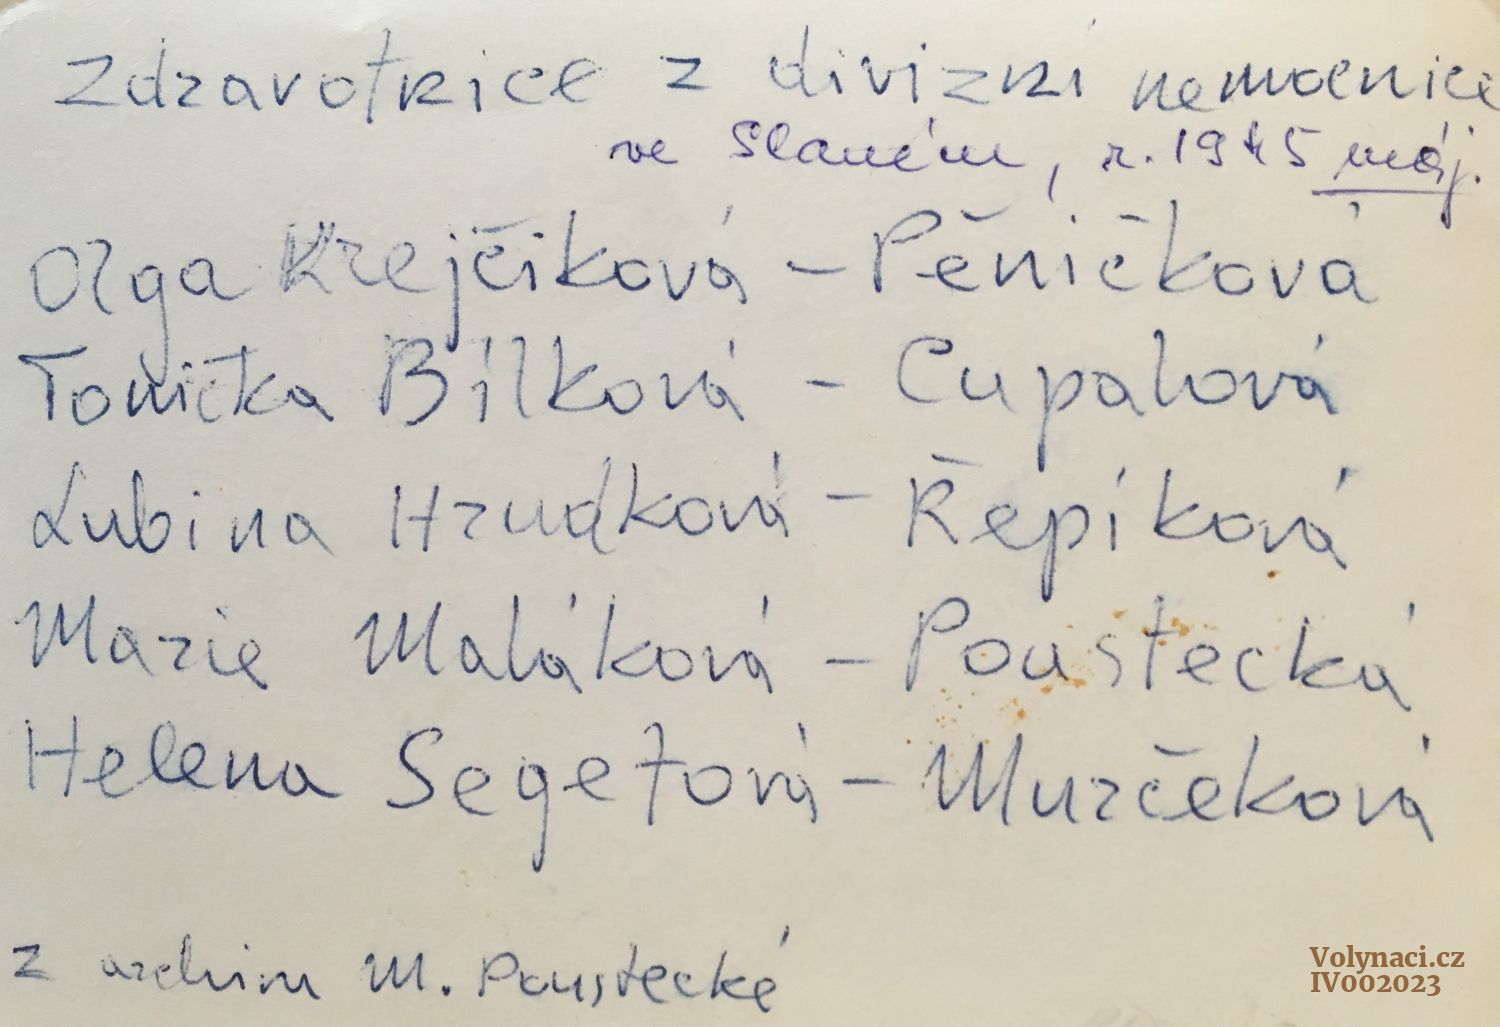 Zdravotnice z divizní nemocnice
ve Slaném, r. 1945 máj.
Olga Krejčiková – Pěničková
Tonička Bílková – Cupalová
Lubina Hrudková – Řepíková
Marie Maláková – Poustecká
Helena Segetová – Murčeková
z archivu M. Poustecké
Volynaci.cz
IV002023